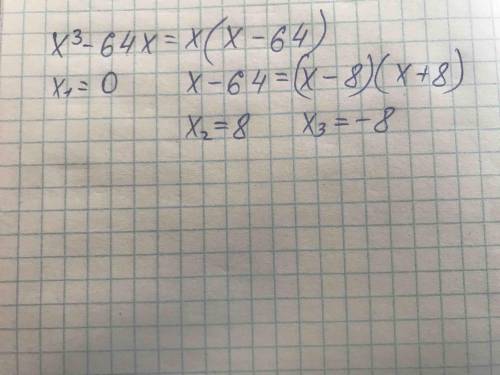 x³-64x=x(x-64)
x₁=0 x-64=(x-8)(x+8)
x₂=8 x₃=-8